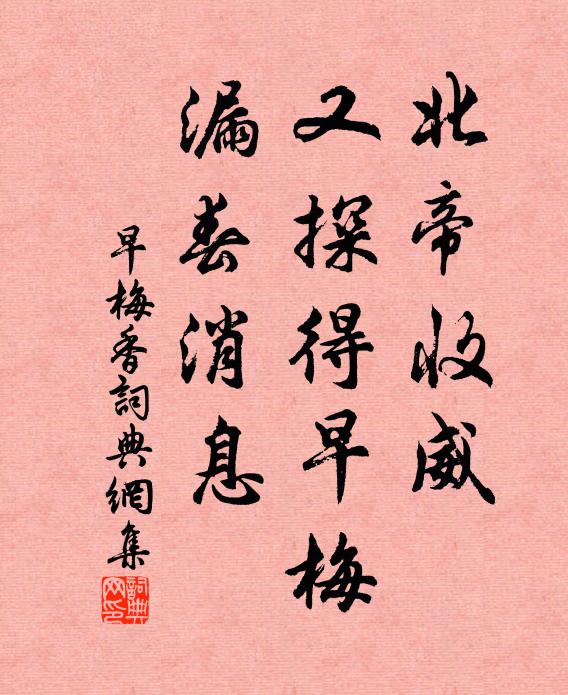 北帝收威
又探得早梅
漏春消息
早梅香詞典網集
詞典网印